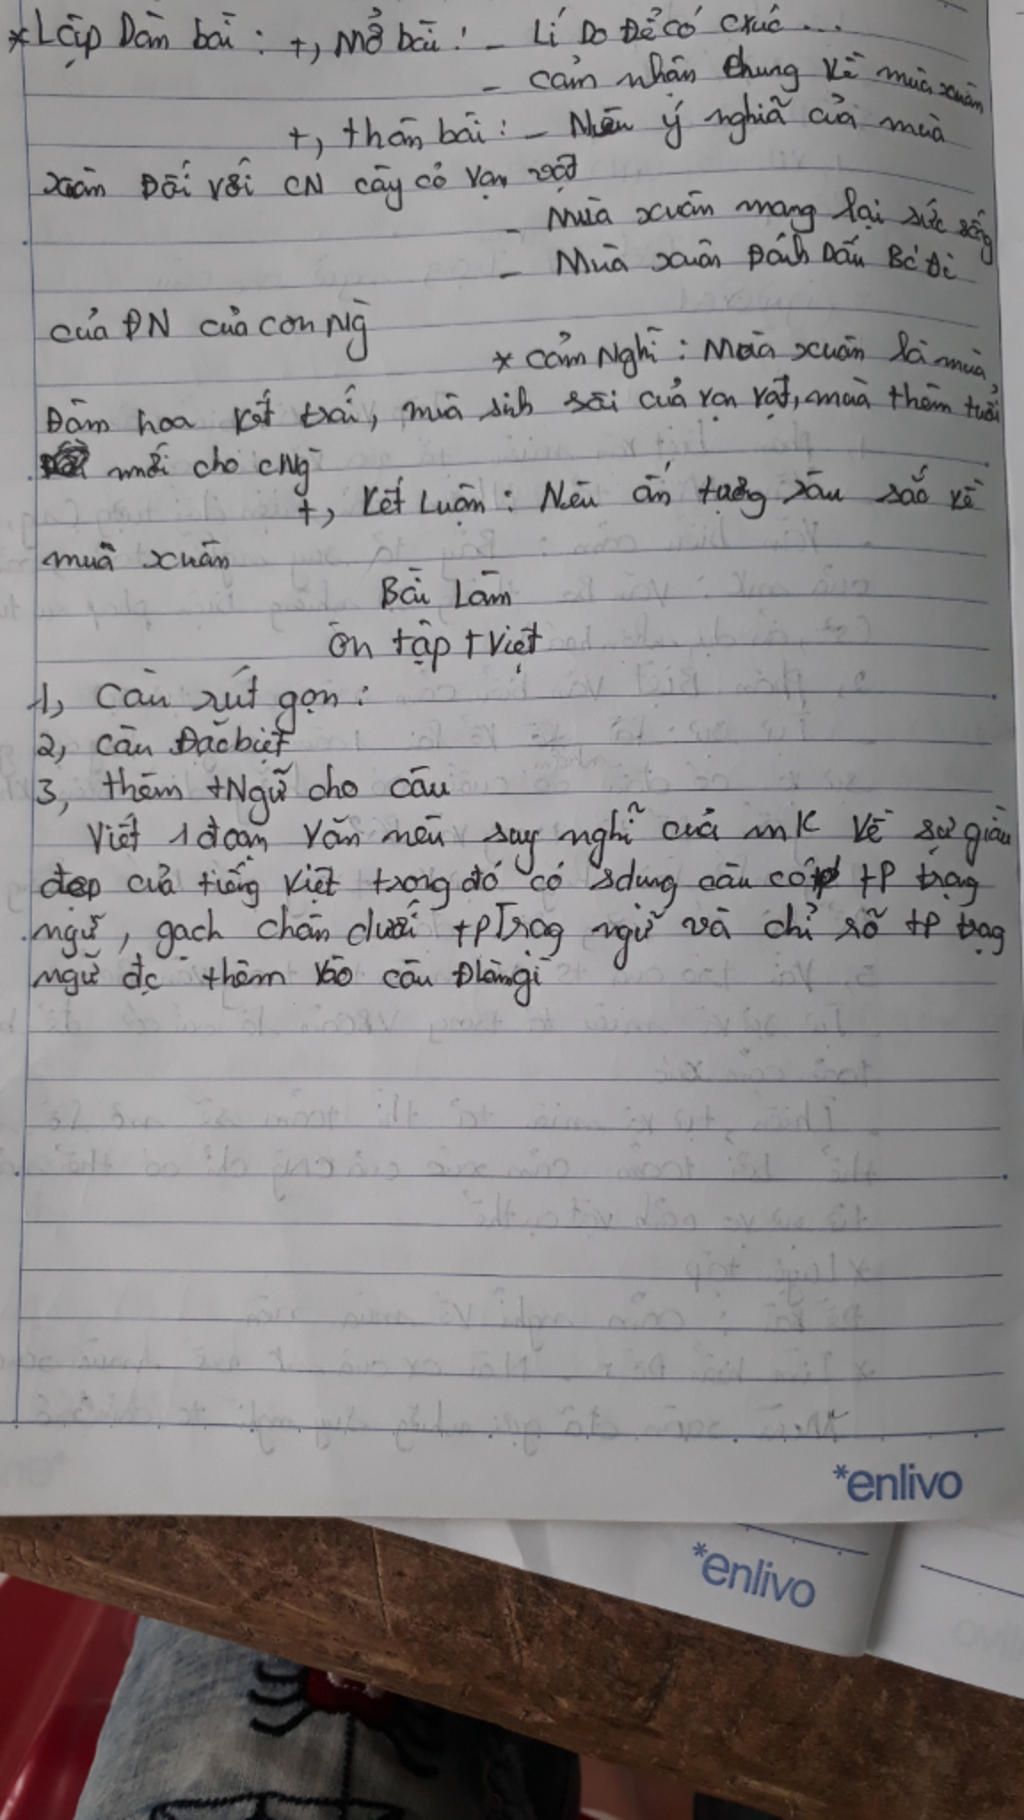 *Lập Dàn bài: +, Mở bài: - Lí Do Để có cxúc...
- cảm nhận chung về mùa xuân
+, thân bài: - Nêu ý nghĩa của mùa
xuân Đối với CN cây cỏ vạn vật
- Mùa xuân mang lại sức sống
- Mùa xuân Đánh Dấu Bc Đi
của ĐN của con Ng
* cảm Nghĩ: Mùa xuân là mùa
Đâm hoa kết trái, mùa sinh sôi của vạn vật, mùa thêm tuổi
mới cho cNg
+, kết Luận: Nêu ấn tượng sâu sắc về
mùa xuân
Bài Làm
ôn tập tViệt
1, Câu rút gọn:
2, câu Đặc biệt
3, thêm tNgữ cho câu
Viết 1 đoạn văn nêu suy nghĩ của mk về sự giàu
đẹp của tiếng việt trong đó có sdụng câu có tP trạng
ngữ, gạch chân dưới tp Trạg ngữ và chỉ rõ tp trạg
ngữ đc thêm vào câu Đlàmgì
*enlivo
*enlivo